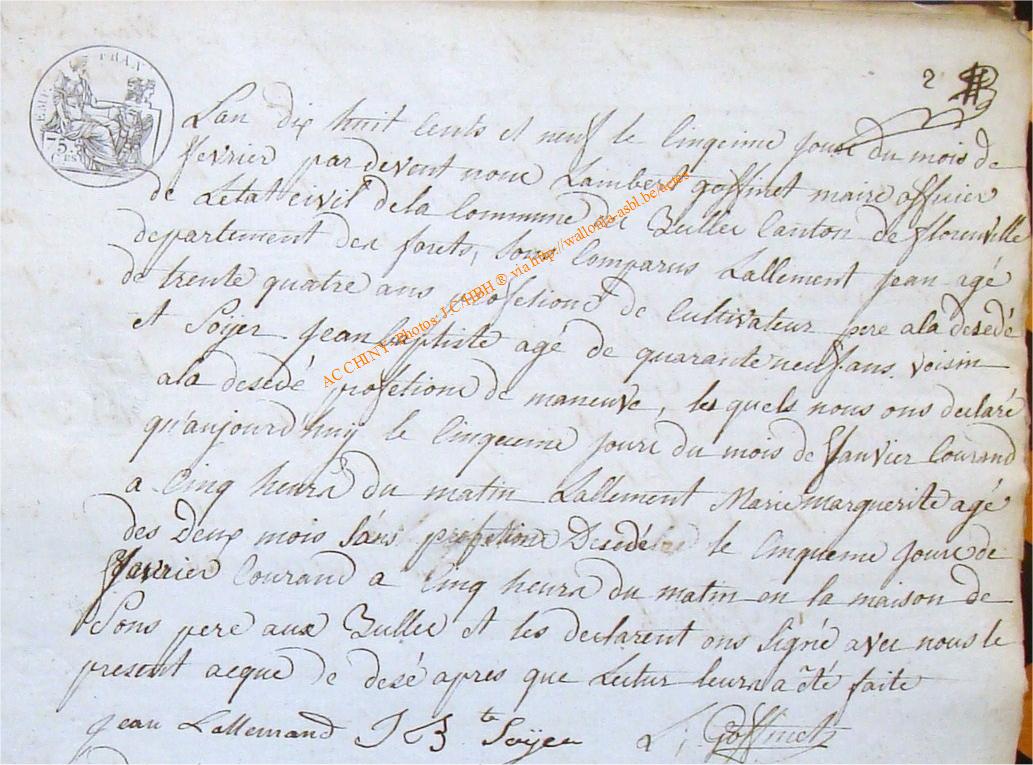 2
EMP. FRAN.
75
CES
Lan dix huit cents et neuf le Cinqeime jour du mois de
fevrier par devent nous Lambert goffinet maire officier
de Letat civil dela Commune du Zulles Canton de florenville
departement des forets, sons Comparus Lallement jean agé
de trente quatre ans profetions de Cultivateur pere ala desedé
et Soÿer jean baptiste agé de quarante neuf ans voisin
ala desedé profetions de maneuve, les quels nous ons declaré
qu'aujourd'huy le Cinqueme jour du mois de Janvier Courand
a Cinq heurs du matin Lallement Marie marguerite agé
des Deux mois Sans profetions Desedé le Cinqueme jour de
favrier Courand a Cinq heurs du matin en la maison de
Sons pere aux Zulles et les declarent ons Signé avec nous le
present acque de desé apres que Lectur leurs a été faite
jean Lallemand J B te Soÿer L, Goffinet
AC CHINY -Photos: J-C HBH ® via http://wallonia-asbl.be/actes